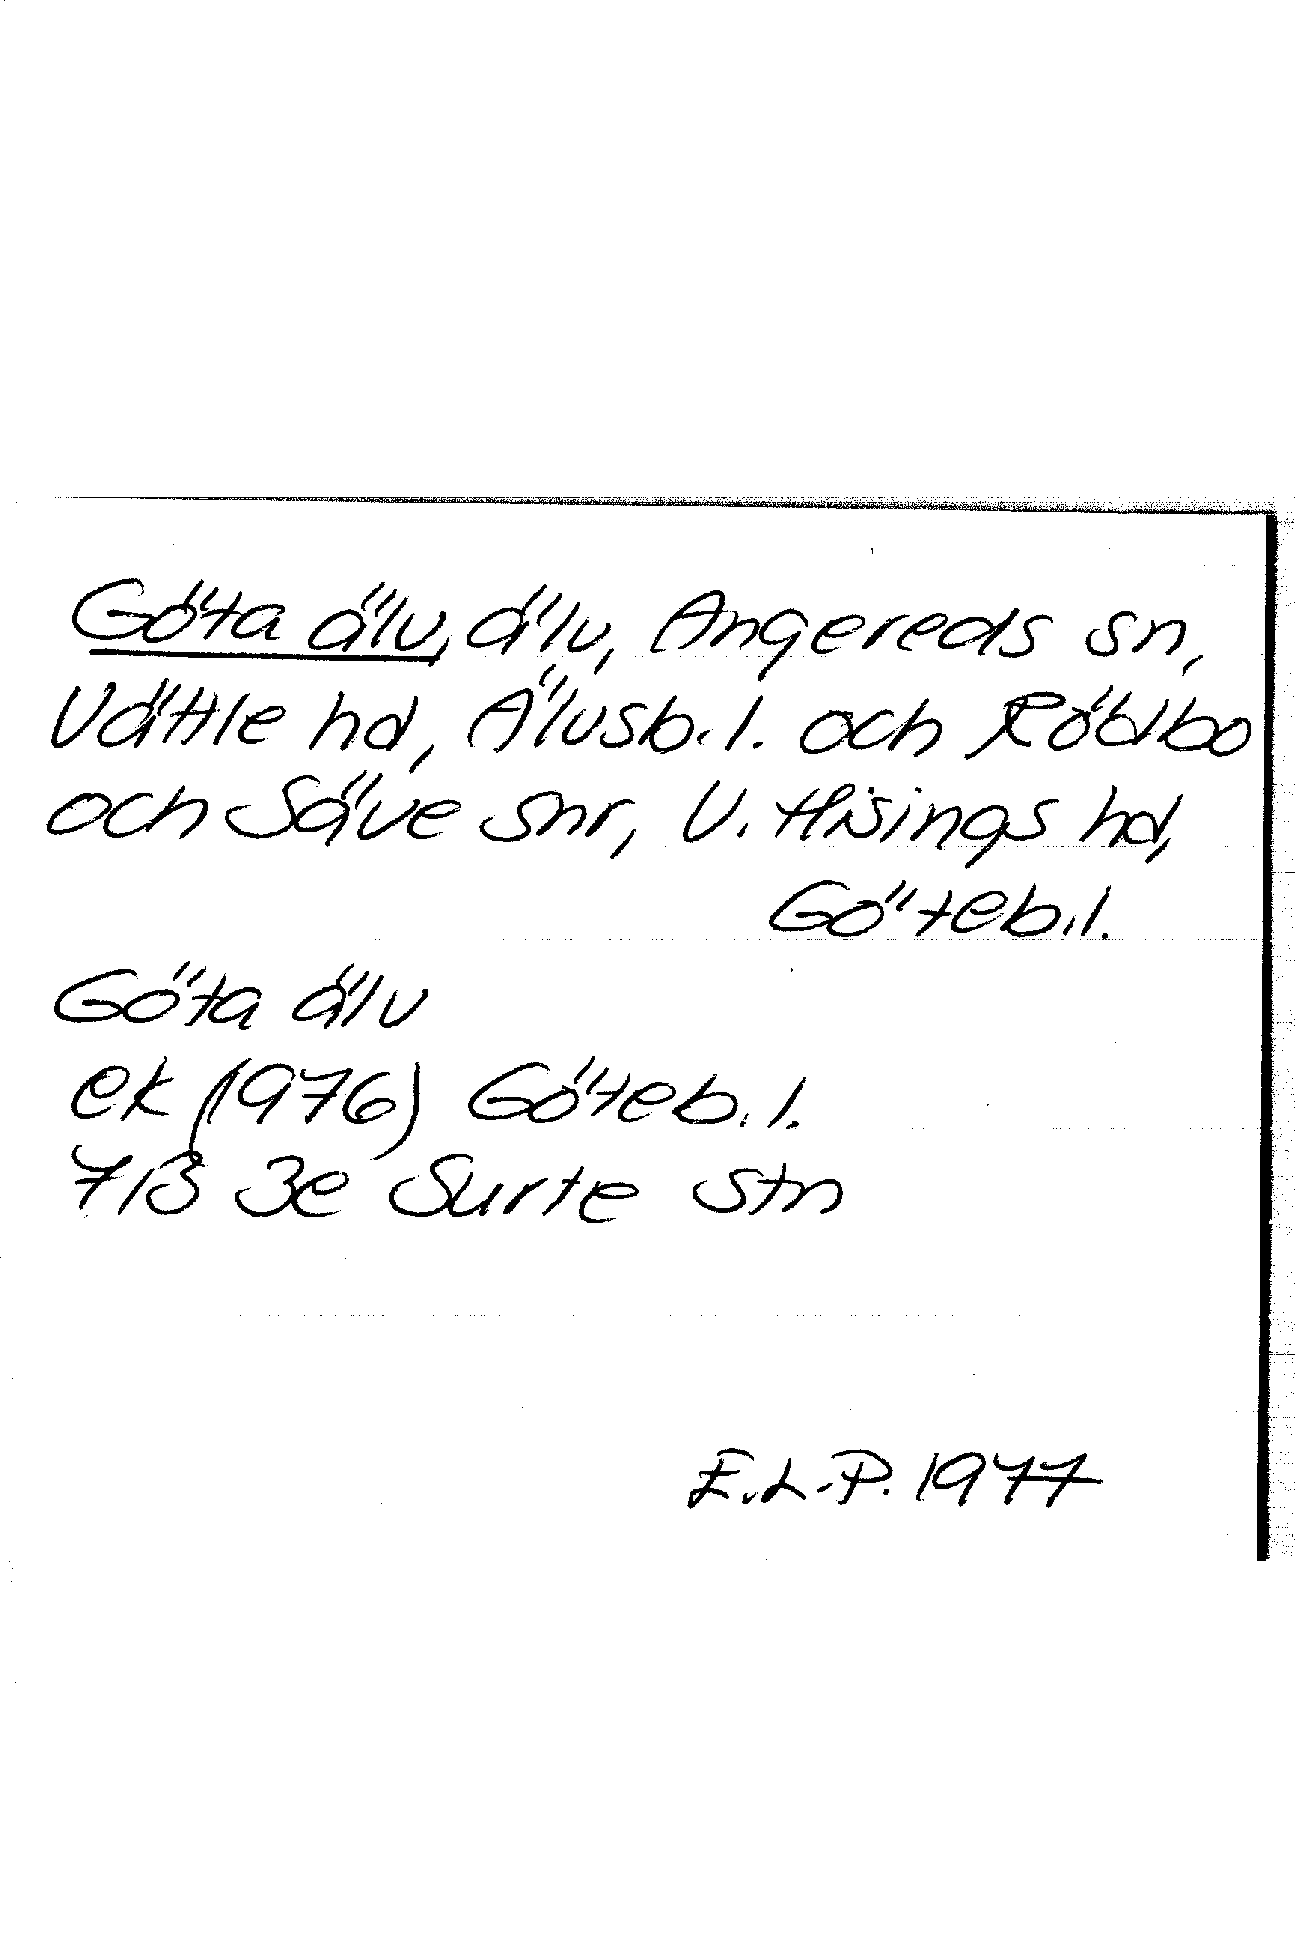 Göta älv, älv, Angereds sn,
Vättle hd, Älvsb. l. och Rödbo
och Säve snr, V. Hisings hd,
Göteb. l.
Göta älv
ek (1976) Göteb. l.
7B 3e Surte stn
E. L-P. 1977